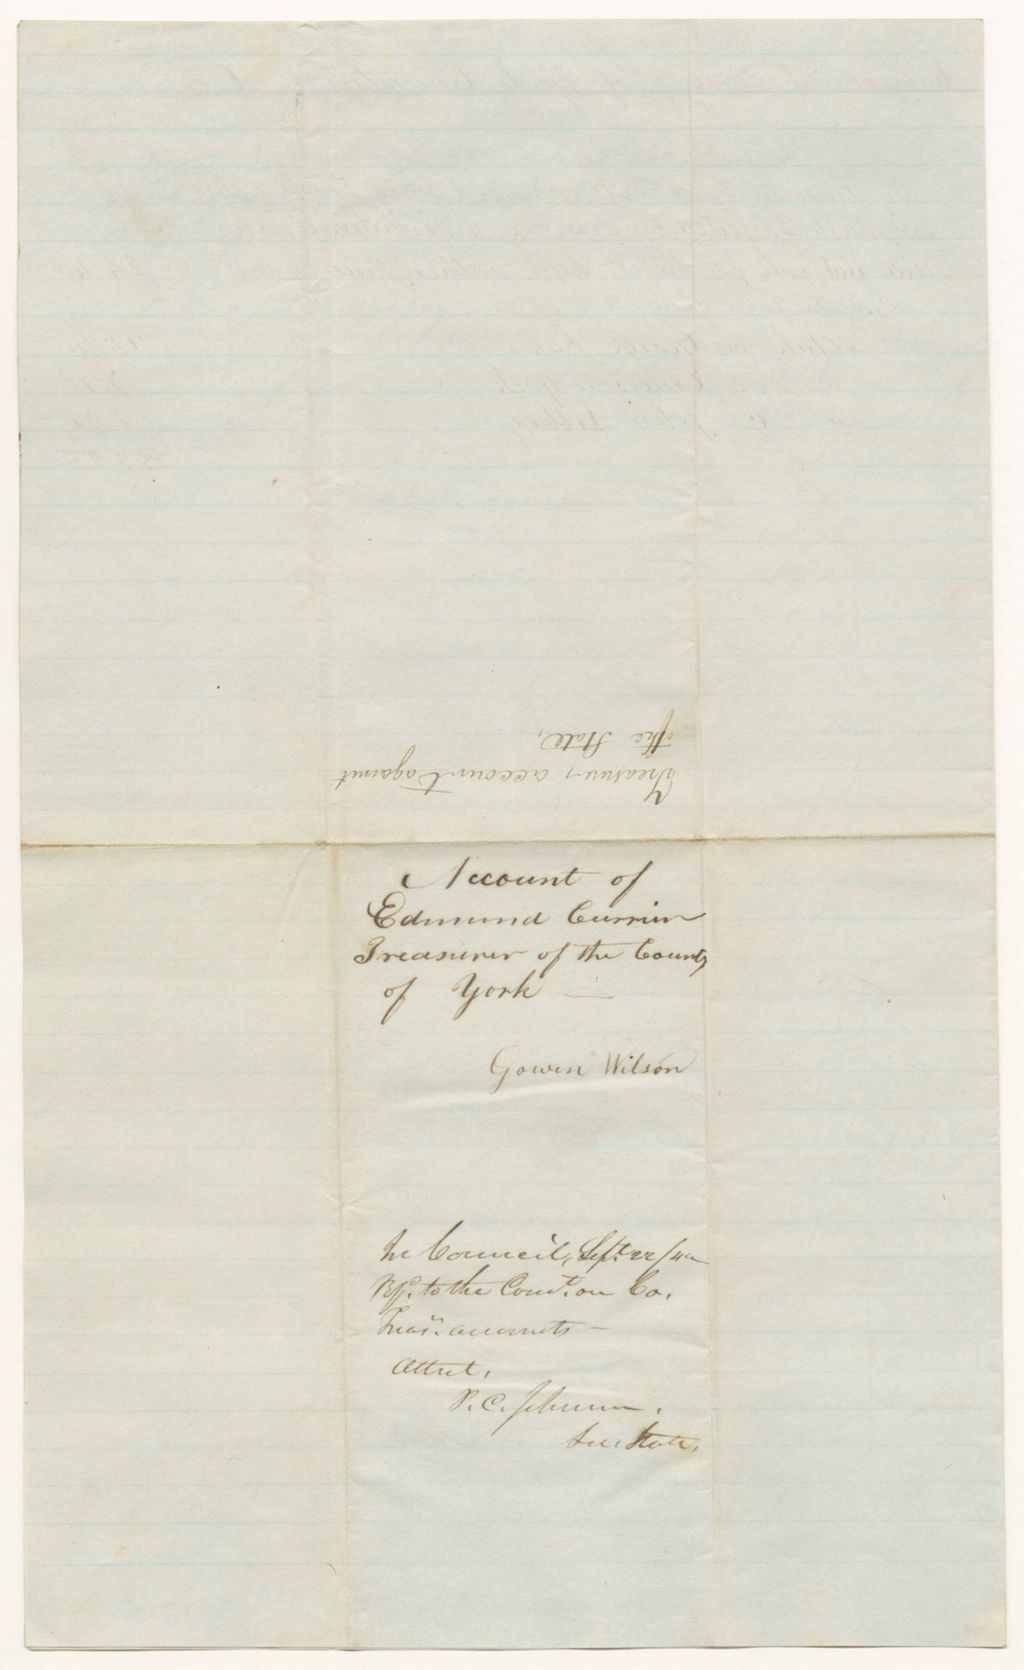 Treasurers account against
the State,
Account of
Edmund Currier
Treasurer of the County
of York —
Gowen Wilson
In Council, Sept. 22/42
Rf'd. to the Comt. on Co.
Treasr. accounts —
Attest,
P. C. Johnson,
Sec. State.